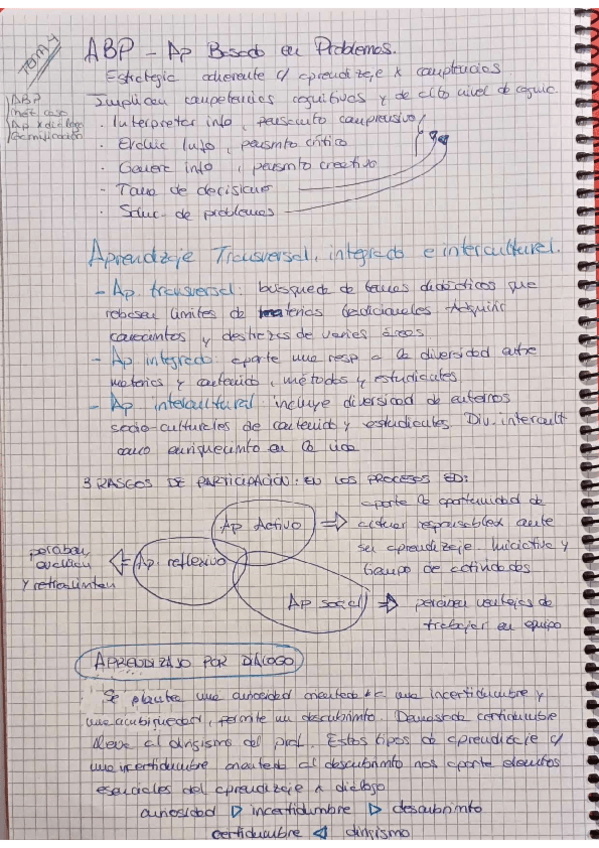 TEMA 4
ABP - Ap Basado en Problemas.
Estrategia coherente c/ aprendizaje x competencias
ABP
Met. caso
Ap x diálogo
Gamificación
Implican competencias cognitivas y de alto nivel de cognic.
· Interpretar info, pensamiento comprensivo
· Evaluar info, pensmto crítico
· Generar info, pensmto creativo
- Toma de decisiones
· Soluc. de problemas
Aprendizaje Transversal, integrado e intercultural.
- Ap. transversal: búsqueda de temas didácticos que
rebasen límites de materias tradicionales Adquirir
conocimntos y destrezas de varias áreas
- Ap integrado: aporte una resp a la diversidad entre
materias y contenido, métodos y estudiantes
- Ap intercultural incluye diversidad de entornos
socio-culturales de contenido y estudiantes Div. intercult
como enriquecimnto en la
3 RASGOS DE PARTICIPACIÓN: EN LOS PROCESOS ED:
Ap Activo ⇒ aporte la oportunidad de
actuar responsablem ante
su aprendizaje iniciativa y
tiempo de actividades
Ap. reflexivo ⇒ perciben
evalúan
y retroalimentan
Ap social ⇒ perciben ventajas de
trabajar en equipo
APRENDIZAJE POR DIÁLOGO
Se plantea una curiosidad orientada a una incertidumbre y
una ambigüedad, permite un descubrimnto. Demasiada certidumbre
lleva al dirigismo del prof. Estos tipos de aprendizaje c/
una incertidumbre orientada al descubrimnto nos aporta elementos
esenciales del aprendizaje x diálogo
curiosidad ▷ incertidumbre ▷ descubrimnto
certidumbre ◁ dirigismo